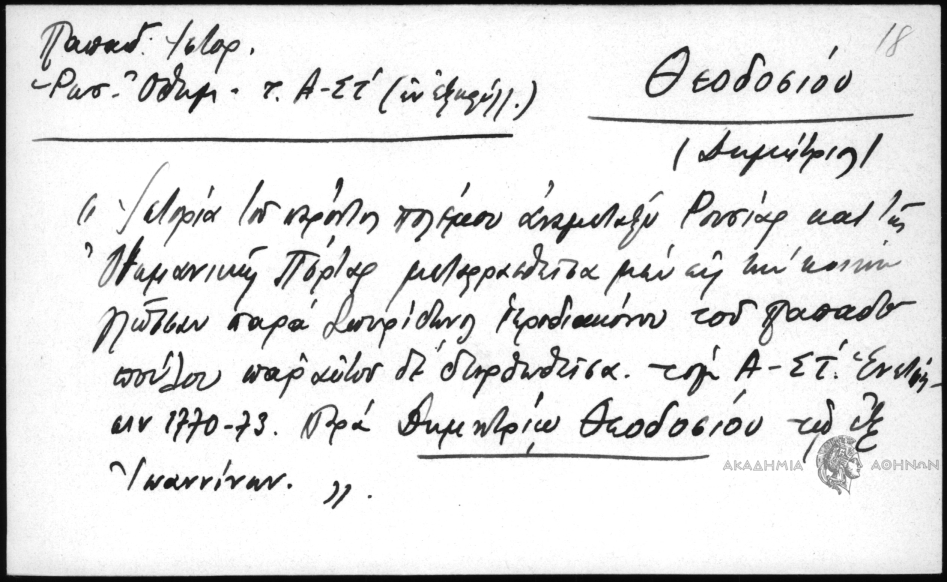 Παπαδ. Ἱστορ.
Ρωσ. Ὀθωμ. τ. Α-ΣΤ΄ (ἐν ἐξαφύλλ.)
18
Θεοδοσίου
(Δημήτριος)
"Ἱστορία τοῦ παρόντος πολέμου ἀναμεταξύ Ρουσίας καί τῆς
Ὀθωμανικῆς Πόρτας μεταφρασθεῖσα μέν εἰς τήν κοινήν
γλῶσσαν παρά Σπυρίδωνος Ἱεροδιακόνου τοῦ Παπαδο
πούλου παρ' αὐτοῦ δέ διορθωθεῖσα. τομ. Α-ΣΤ΄. Ἐνετίη-
σιν 1770-73. Παρά Δημητρίῳ Θεοδοσίου τῷ ἐξ
Ἰωαννίνων. ".
ΑΚΑΔΗΜΙΑ ΑΘΗΝΩΝ